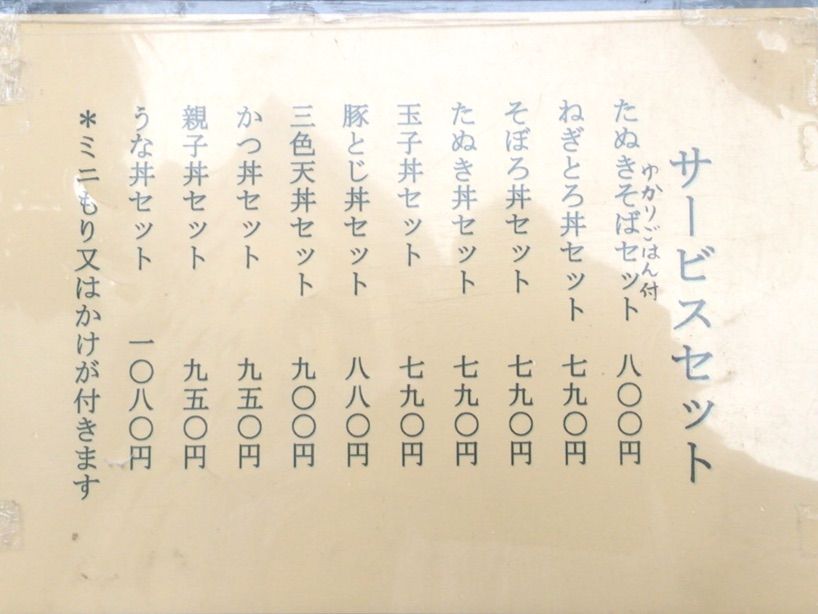 サービスセット
ゆかりごはん付
たぬきそばセット 八〇〇円
ねぎとろ丼セット 七九〇円
そぼろ丼セット 七九〇円
たぬき丼セット 七九〇円
玉子丼セット 七九〇円
豚とじ丼セット 八八〇円
三色天丼セット 九〇〇円
かつ丼セット 九五〇円
親子丼セット 九五〇円
うな丼セット 一〇八〇円
＊ミニもり又はかけが付きます